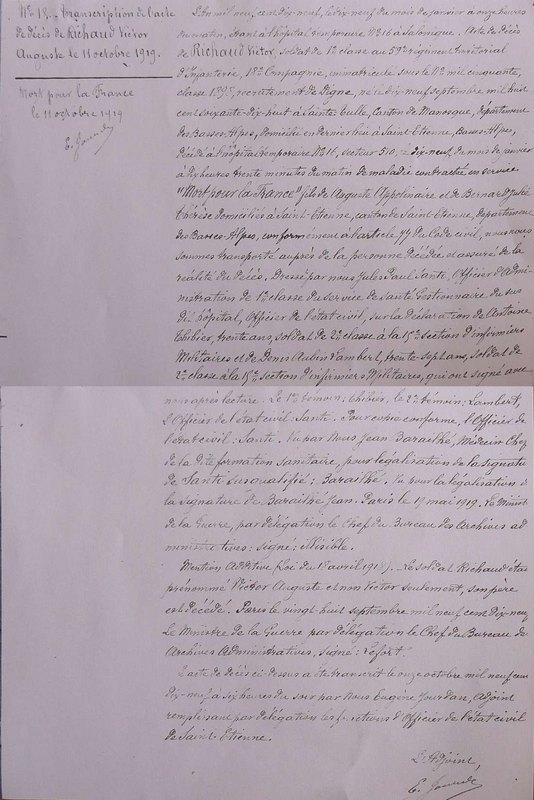 No 18. Transcription de l'acte
de décès de Richaud Victor
Auguste le 11 octobre 1919.
Mort pour la France
le 11 octobre 1919
E. Jourdan
L'An mil neuf cent dix-neuf, le dix-neuf du mois de janvier à onze heures
du matin, étant à l'hôpital temporaire No 16 à Salonique. Acte de décès
de Richaud Victor, soldat de 1e classe au 59e régiment territorial
d'Infanterie, 18e Compagnie, immatriculé sous le No mil cinquante,
classe 1898, recrutement de Digne, né le dix-neuf septembre mil huit
cent soixante-dix-huit à Sainte Tulle, Canton de Manosque, département
des Basses-Alpes, domicilié en dernier lieu à Saint-Etienne, Basses-Alpes,
décédé à l'hôpital temporaire No 16, secteur 510, le dix-neuf du mois de janvier
à heures trente minutes du matin de maladie contractée en service
"Mort pour la France" fils de Auguste Appolinaire et de Bernard Julie
Thérèse domiciliés à Saint-Etienne, canton de Saint-Etienne, département
des Basses-Alpes, conformément à l'article 77 du Code civil, nous nous
sommes transporté auprès de la personne décédée et assuré de la
réalité du décès, Dressé par nous Jules Paul Santi, Officier d'Admi-
nistration de 1e classe du service de Santé Gestionnaire du sus
dit hôpital, Officier de l'état civil, sur la déclaration de Antoine
Thibier, trente ans, soldat de 2e classe à la 15e section d'infirmiers
Militaires et de Denis Aubin Lambert, trente sept ans, soldat de
2e classe à la 15e section d'infirmiers Militaires, qui ont signé avec
nous après lecture. Le 1er témoin: Thibier, le 2e témoin: Lambert,
L'Officier de l'état civil: Santi. Pour copie conforme, l'Officier de
l'état civil: Santi. Vu par Nous Jean Barailhé, Médecin Chef
de la dite formation sanitaire, pour légalisation de la signatu
de Santi susqualifié: Barailhé. Vu pour la légalisation d
la signature de Barailhé Jean. Paris le 19 mai 1919. Le Minist
de la Guerre, par délégation le Chef du Bureau des Archives ad
ministratives: signé: illisible.
Mention Additive (Loi du 18 avril 1918). Le soldat Richaud étai
prénommé Victor Auguste et non Victor seulement, son père
est décédé. Paris le vingt-huit septembre mil neuf cent dix-neuf
Le Ministre de la Guerre par délégation le Chef du Bureau de
Archives Administratives, signé: Lefort
L'acte de décès ci-dessus a été transcrit le onze octobre mil neuf cen
dix-neuf à six heures du soir par Nous Eugène Jourdan, Adjoint
remplissant par délégation les fonctions d'Officier de l'état civil
de Saint-Etienne.
L'Adjoint,
E. Jourdan